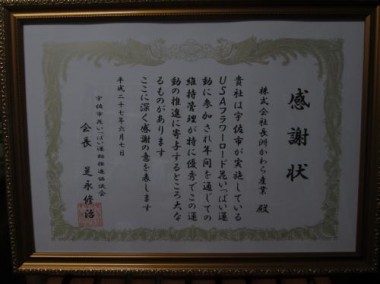 感謝状
株式会社長洲かわら産業 殿
貴社は宇佐市が実施している
USAフラワーロード花いっぱい運
動に参加され年間を通しての
維持管理が特に優秀でこの運
動の推進に寄与するところ大な
るものがあります
ここに深く感謝の意を表します
平成二十七年六月七日
宇佐市花いっぱい運動推進協議会
会長 是永修治